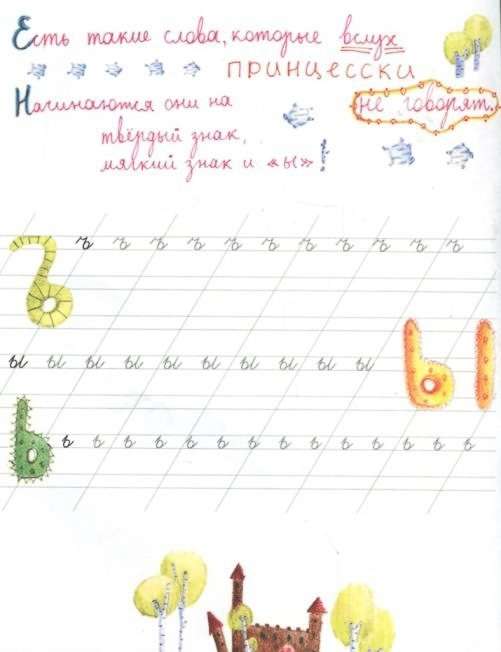 Есть такие слова, которые вслух
ПРИНЦЕССКИ
не говорят.
Начинаются они на
твёрдый знак,
мягкий знак и «ы»!
Ъ ъ ъ ъ ъ ъ ъ ъ ъ ъ ъ ъ
ы ы ы ы ы ы ы ы ы ы Ы
Ь ь ь ь ь ь ь ь ь ь ь ь ь ь ь